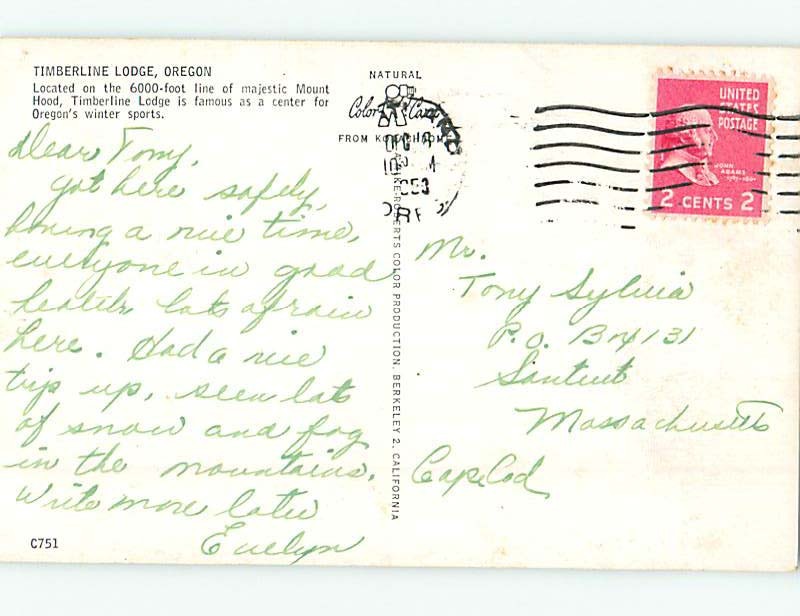 TIMBERLINE LODGE, OREGON
Located on the 6000-foot line of majestic Mount
Hood, Timberline Lodge is famous as a center for
Oregon's winter sports.
Dear Tony,
Got here safely,
having a nice time,
everyone in good
health lots of rain
here. Had a nice
trip up, seen lots
of snow and fog
in the mountains.
Write more later
Evelyn
C751
NATURAL
Color Card
FROM KODACHROME
ROBERTS COLOR PRODUCTION, BERKELEY 2, CALIFORNIA
ORE
UNITED
STATES
POSTAGE
JOHN
ADAMS
2 CENTS 2
Mr.
Tony Sylvia
P.O. Box 131
Santuit
Massachusetts
Cape Cod